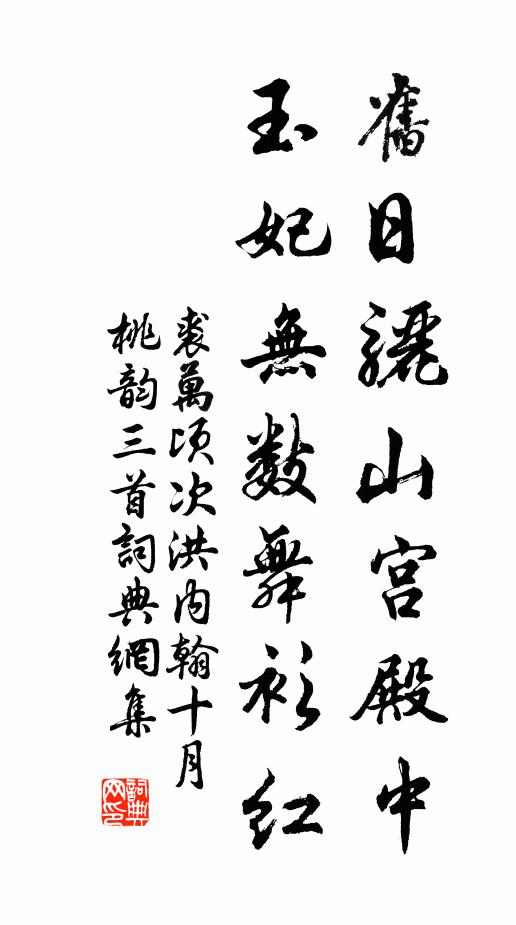 舊日驪山宫殿中
玉妃無数舞衫红
裘萬頃次洪内翰十月
桃韵三首詞典網集
詞典网印